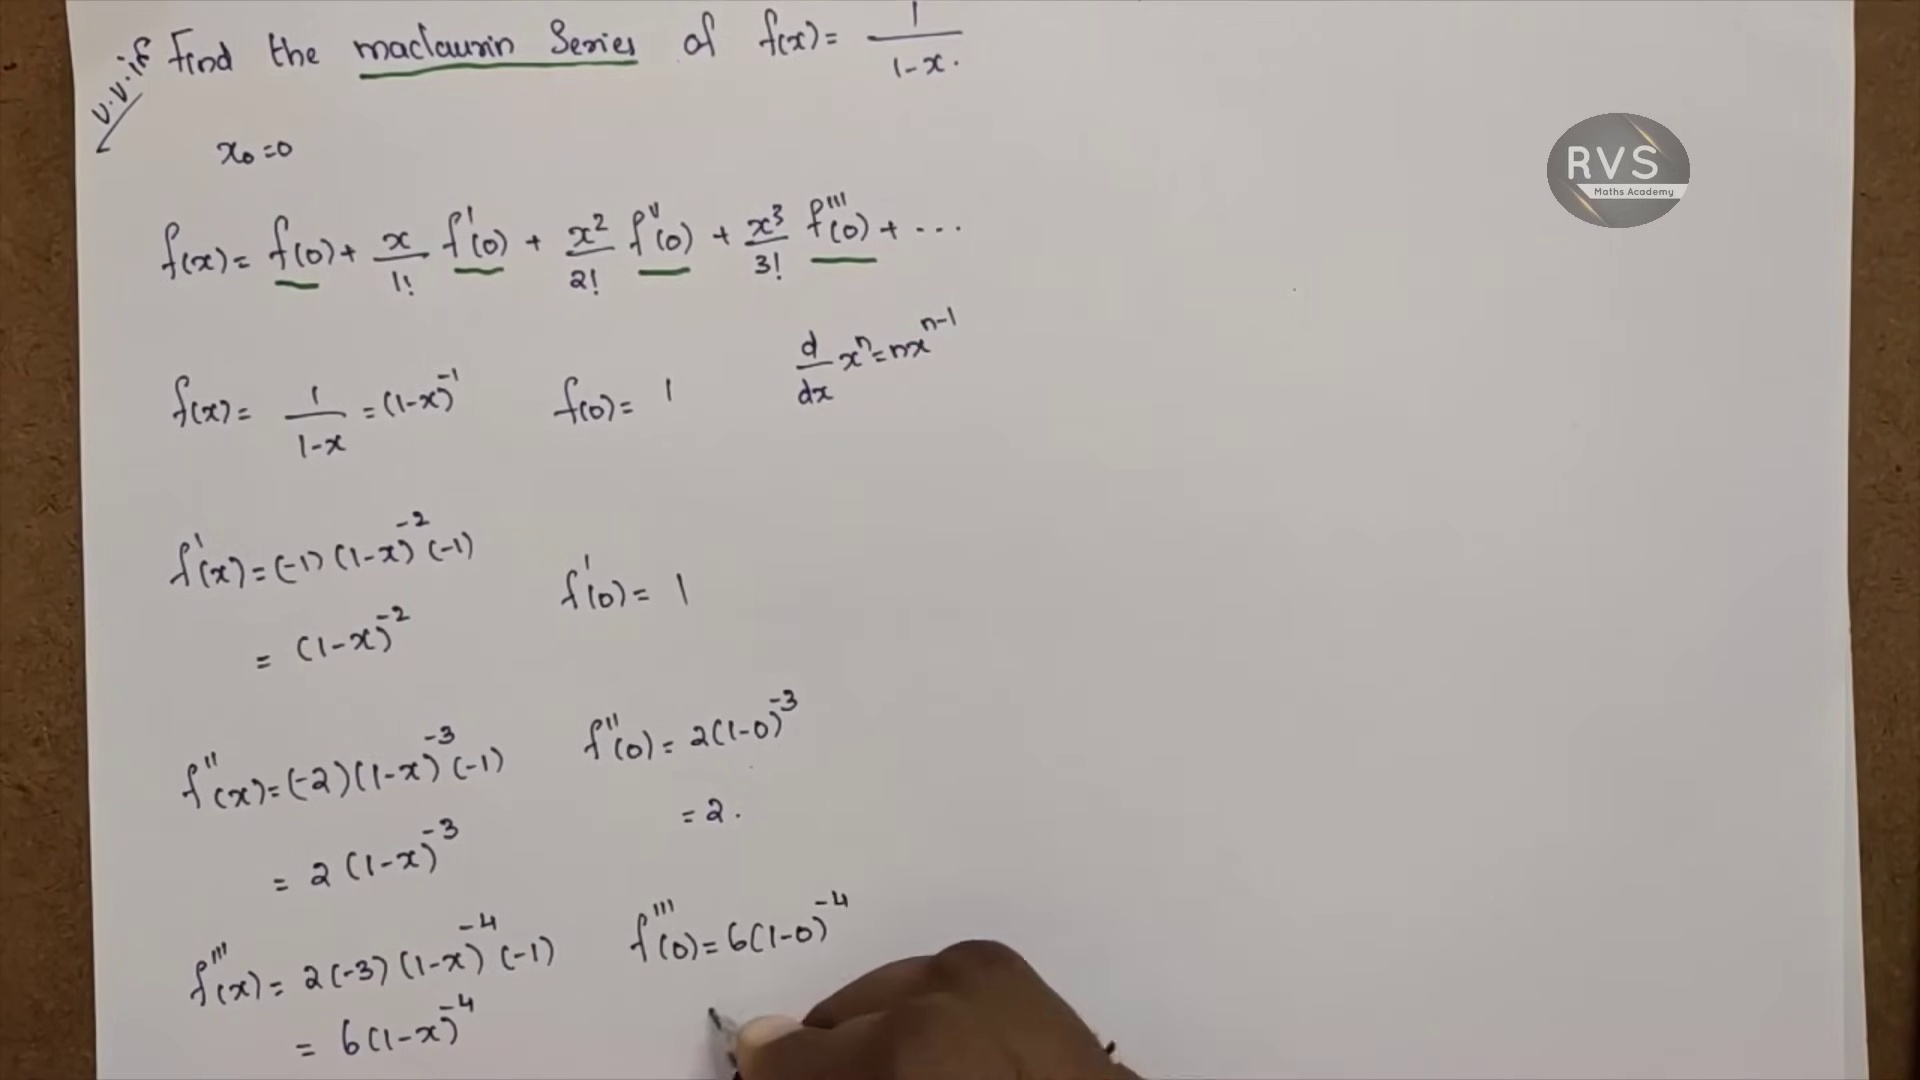 v.v.if Find the maclaurin Series of f(x) = 1/(1-x).
x₀ = 0
f(x) = f(0) + x/1! f'(0) + x²/2! f''(0) + x³/3! f'''(0) + ...
d/dx xⁿ = nxⁿ⁻¹
f(x) = 1/(1-x) = (1-x)⁻¹ f(0) = 1
f'(x) = (-1)(1-x)⁻²(-1) f'(0) = 1
= (1-x)⁻²
f''(x) = (-2)(1-x)⁻³(-1) f''(0) = 2(1-0)⁻³
= 2(1-x)⁻³ = 2.
f'''(x) = 2(-3)(1-x)⁻⁴(-1) f'''(0) = 6(1-0)⁻⁴
= 6(1-x)⁻⁴
RVS
Maths Academy